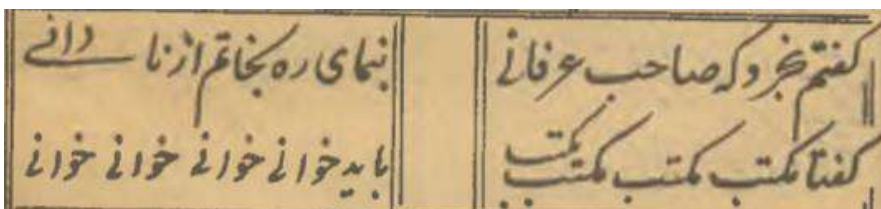 گفتم بخرد که صاحب عرفانی
بنمای ره نجاتم از نادانی
گفتا مکتب مکتب مکتب مکتب
باید خوانی خوانی خوانی خوانی